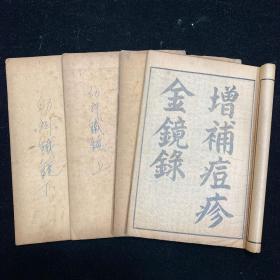 增補痘疹
金鏡錄
幼科鐵鏡上
幼科鐵鏡下